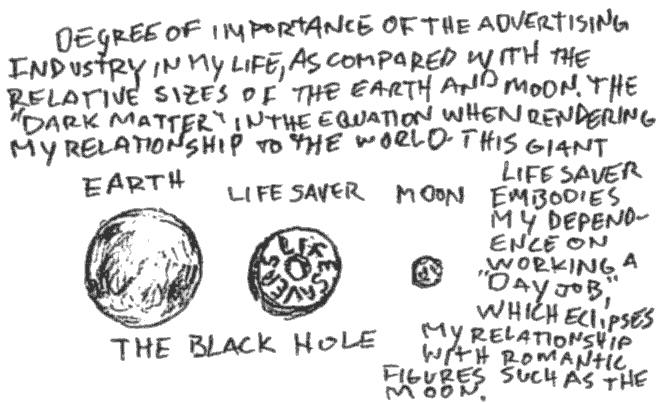 DEGREE OF IMPORTANCE OF THE ADVERTISING
INDUSTRY IN MY LIFE, AS COMPARED WITH THE
RELATIVE SIZES OF THE EARTH AND MOON. THE
"DARK MATTER" IN THE EQUATION WHEN RENDERING
MY RELATIONSHIP TO THE WORLD THIS GIANT
LIFE SAVER
EMBODIES
MY DEPEND-
ENCE ON
WORKING A
"DAY JOB,"
WHICH ECLIPSES
MY RELATIONSHIP
WITH ROMANTIC
FIGURES SUCH AS THE
MOON.
EARTH
LIFE SAVER
MOON
LIFE SAVERS
THE BLACK HOLE